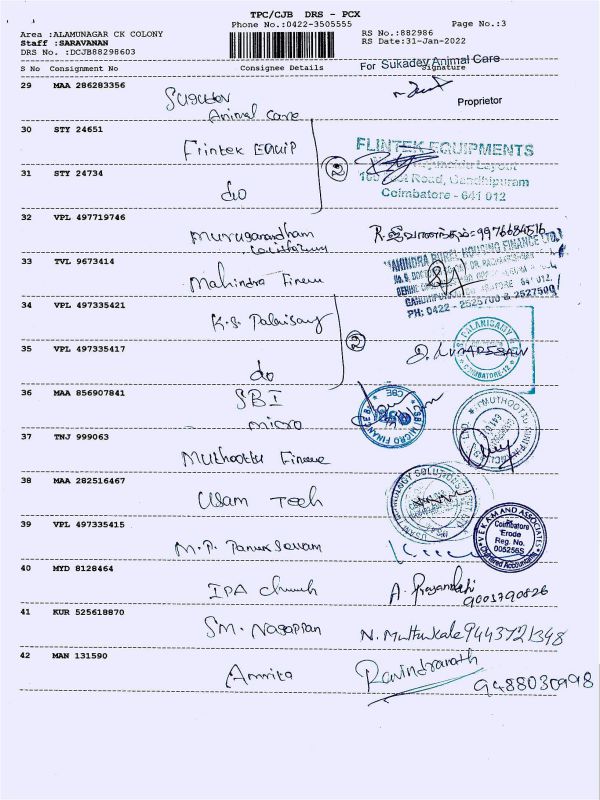 TPC/CJB DRS - PCX
Phone No.:0422-3505555
Page No.:3
Area :ALAMUNAGAR CK COLONY
Staff :SARAVANAN
DRS No. :DCJB88298603
RS No.:882986
RS Date:31-Jan-2022
S No Consignment No Consignee Details Signature
For Sukadev Animal Care
29 MAA 286283356
Animal Care
Proprietor
30 STY 24651
Flintek Equip
FLINTEK EQUIPMENTS
Road, Gandhipuram
Coimbatore - 641 012
31 STY 24734
do
2
32 VPL 497719746
Muruganandham
R. ஜீவானந்தம் = 9976684516
33 TVL 9673414
Mahindra Finance
MAHINDRA RURAL HOUSING FINANCE LTD.
PH: 0422 - 2525700 & 2527500
34 VPL 497335421
K.S. Palanisamy
35 VPL 497335417
do
2
COIMBATORE-12
36 MAA 856907841
SBI
micro
37 TNJ 999063
Muthoottu Finance
38 MAA 282516467
Usam Tech
39 VPL 497335415
Coimbatore
Erode
Reg. No.
005256S
Chartered Accountants
40 MYD 8128464
IPA church
9003790826
41 KUR 525618870
SM. Nagappan
N. Muthukale 9443721348
42 MAN 131590
Amrita
Ravindranath
9488030998